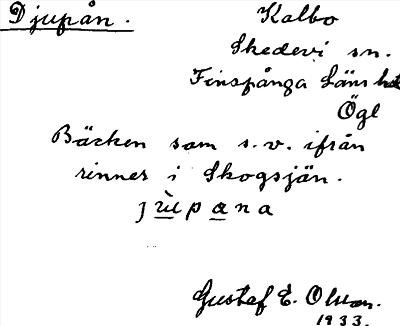 Djupån.
Kalbo
Skedevi sn.
Finspånga Läns hd
Ögl
Bäcken som s.v. ifrån
rinner i Skogsjön.
jùpana
Gustaf E. Olson.
1933.